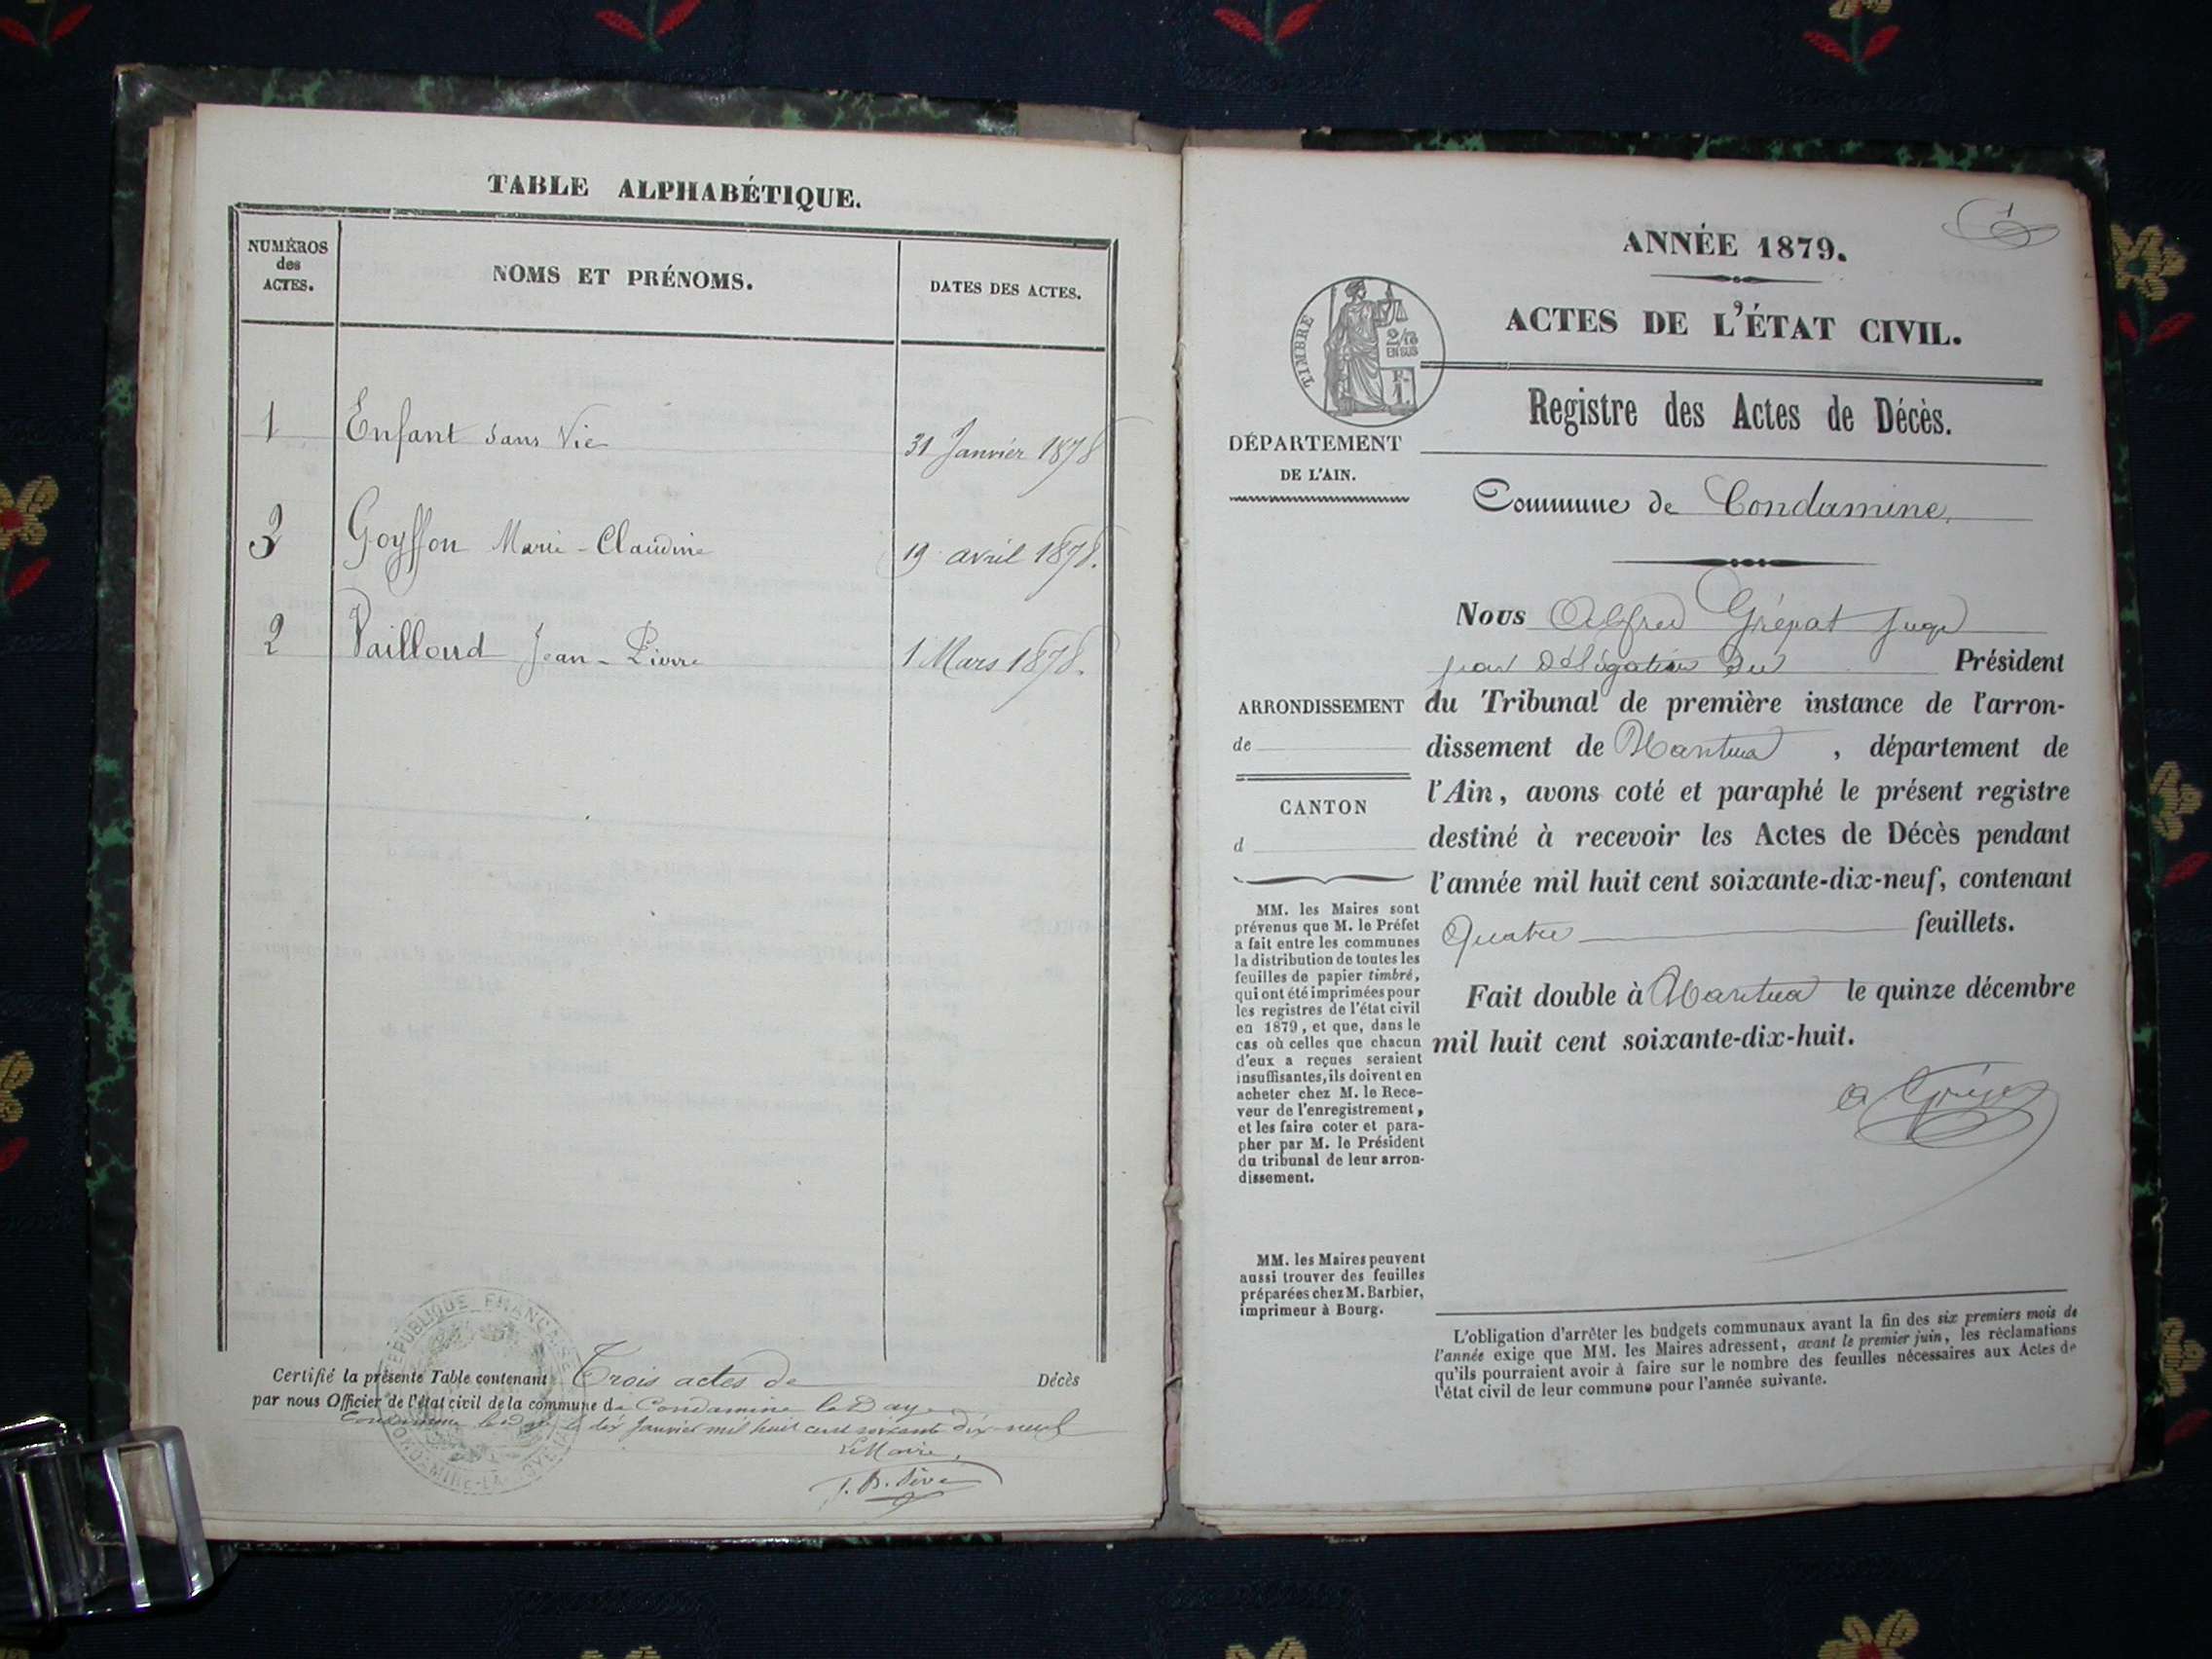 TABLE ALPHABÉTIQUE.
NUMÉROS
des
ACTES.
NOMS ET PRÉNOMS.
DATES DES ACTES.
1 Enfant sans Vie 31 Janvier 1878
3 Goyffon Marie-Claudine 19 avril 1878.
2 Vailloud Jean-Pierre 1 Mars 1878.
RÉPUBLIQUE FRANÇAISE
Certifié la présente Table contenant Trois actes de Décès
par nous Officier de l'état civil de la commune de Condamine la Doye
Condamine la Doye le dix Janvier mil huit cent soixante dix-neuf
Le Maire,
J. B. Sève
1
ANNÉE 1879.
ACTES DE L'ÉTAT CIVIL.
TIMBRE
2/10
EN SUS
Registre des Actes de Décès.
DÉPARTEMENT
DE L'AIN.
Commune de Condamine,
Nous Alfred Grépat Juge
par délégation du Président
du Tribunal de première instance de l'arron-
dissement de Nantua, département de
l'Ain, avons coté et paraphé le présent registre
destiné à recevoir les Actes de Décès pendant
l'année mil huit cent soixante-dix-neuf, contenant
Quatre feuillets.
Fait double à Nantua le quinze décembre
mil huit cent soixante-dix-huit.
ARRONDISSEMENT
de
CANTON
d
MM. les Maires sont
prévenus que M. le Préfet
a fait entre les communes
la distribution de toutes les
feuilles de papier timbré,
qui ont été imprimées pour
les registres de l'état civil
en 1879, et que, dans le
cas où celles que chacun
d'eux a reçues seraient
insuffisantes, ils doivent en
acheter chez M. le Rece-
veur de l'enregistrement,
et les faire coter et para-
pher par M. le Président
du tribunal de leur arron-
dissement.
MM. les Maires peuvent
aussi trouver des feuilles
préparées chez M. Barbier,
imprimeur à Bourg.
L'obligation d'arrêter les budgets communaux avant la fin des six premiers mois de
l'année exige que MM. les Maires adressent, avant le premier juin, les réclamations
qu'ils pourraient avoir à faire sur le nombre des feuilles nécessaires aux Actes de
l'état civil de leur commune pour l'année suivante.